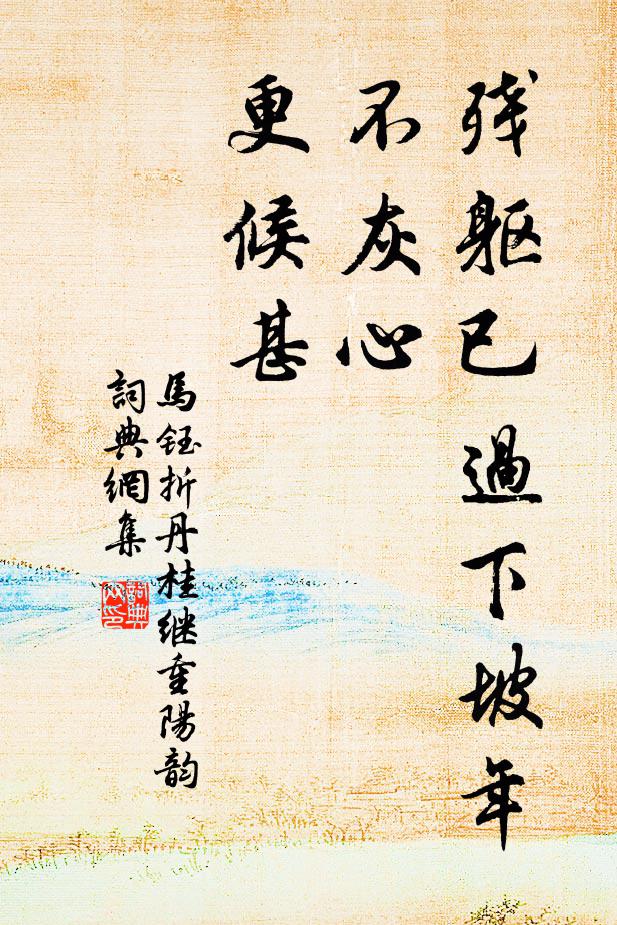 残躯已過下坡年
不灰心
更候甚
馬鈺折丹桂继重陽韵
詞典網集